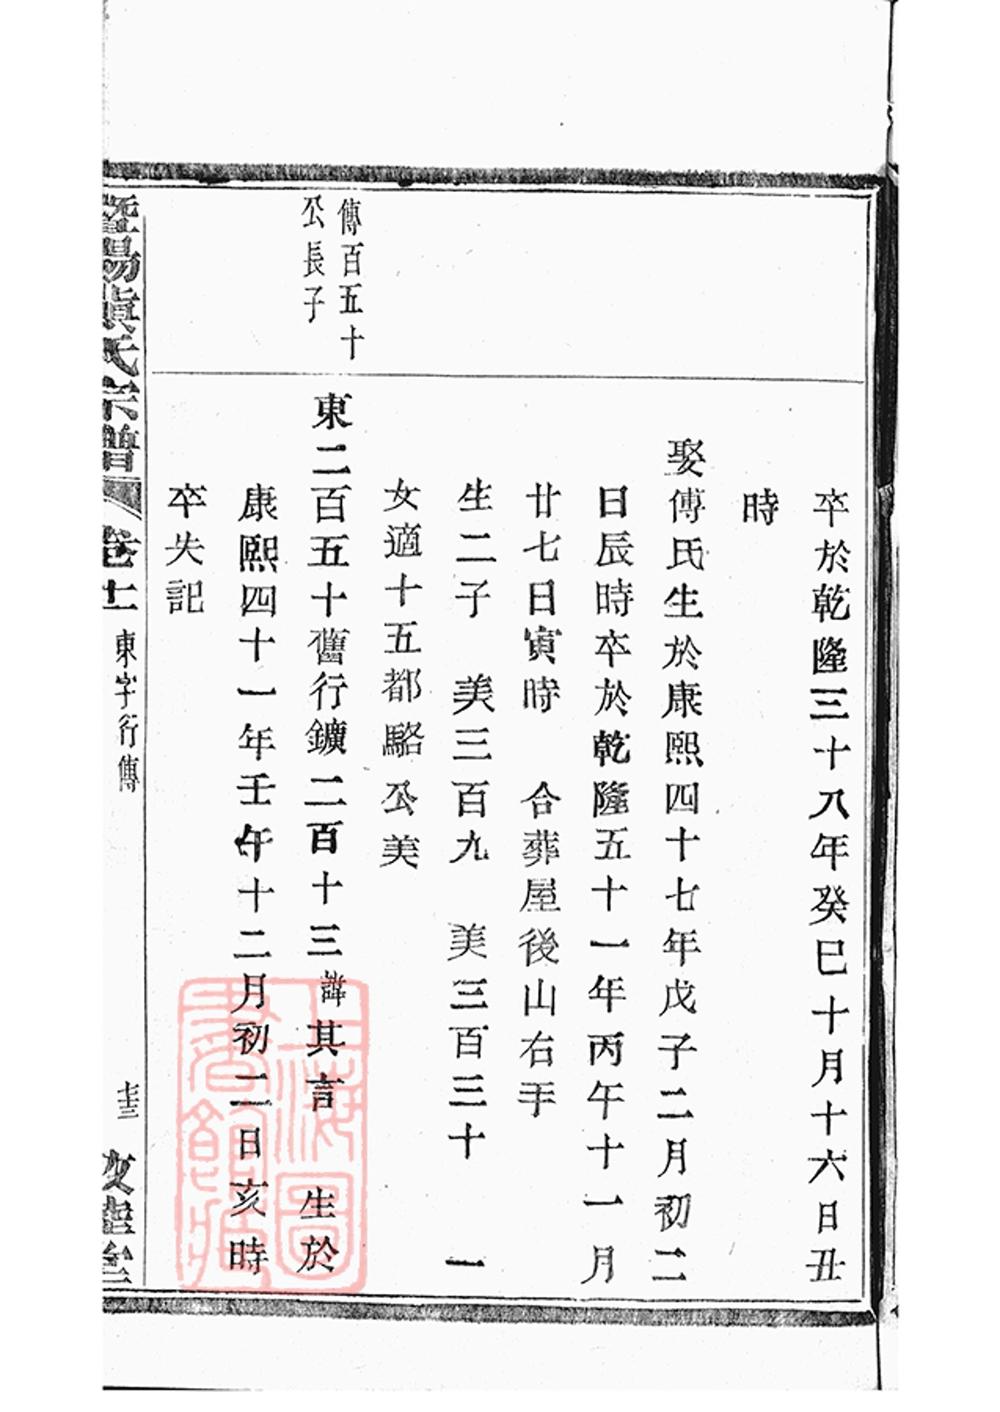 卒於乾隆三十八年癸巳十月十六日丑
時
娶傅氏生於康熙四十七年戊子二月初二
日辰時卒於乾隆五十一年丙午十一月
廿七日寅時　合葬屋後山右手
生二子　美三百九　美三百三十　一
女適十五都駱公美
傳百五十
公長子
東二百五十舊行鑛二百十三諱其言　生於
康熙四十一年壬午十二月初二日亥時
卒失記
暨陽 氏宗譜 卷十一 東字行傳 七十三
上海圖
書館藏